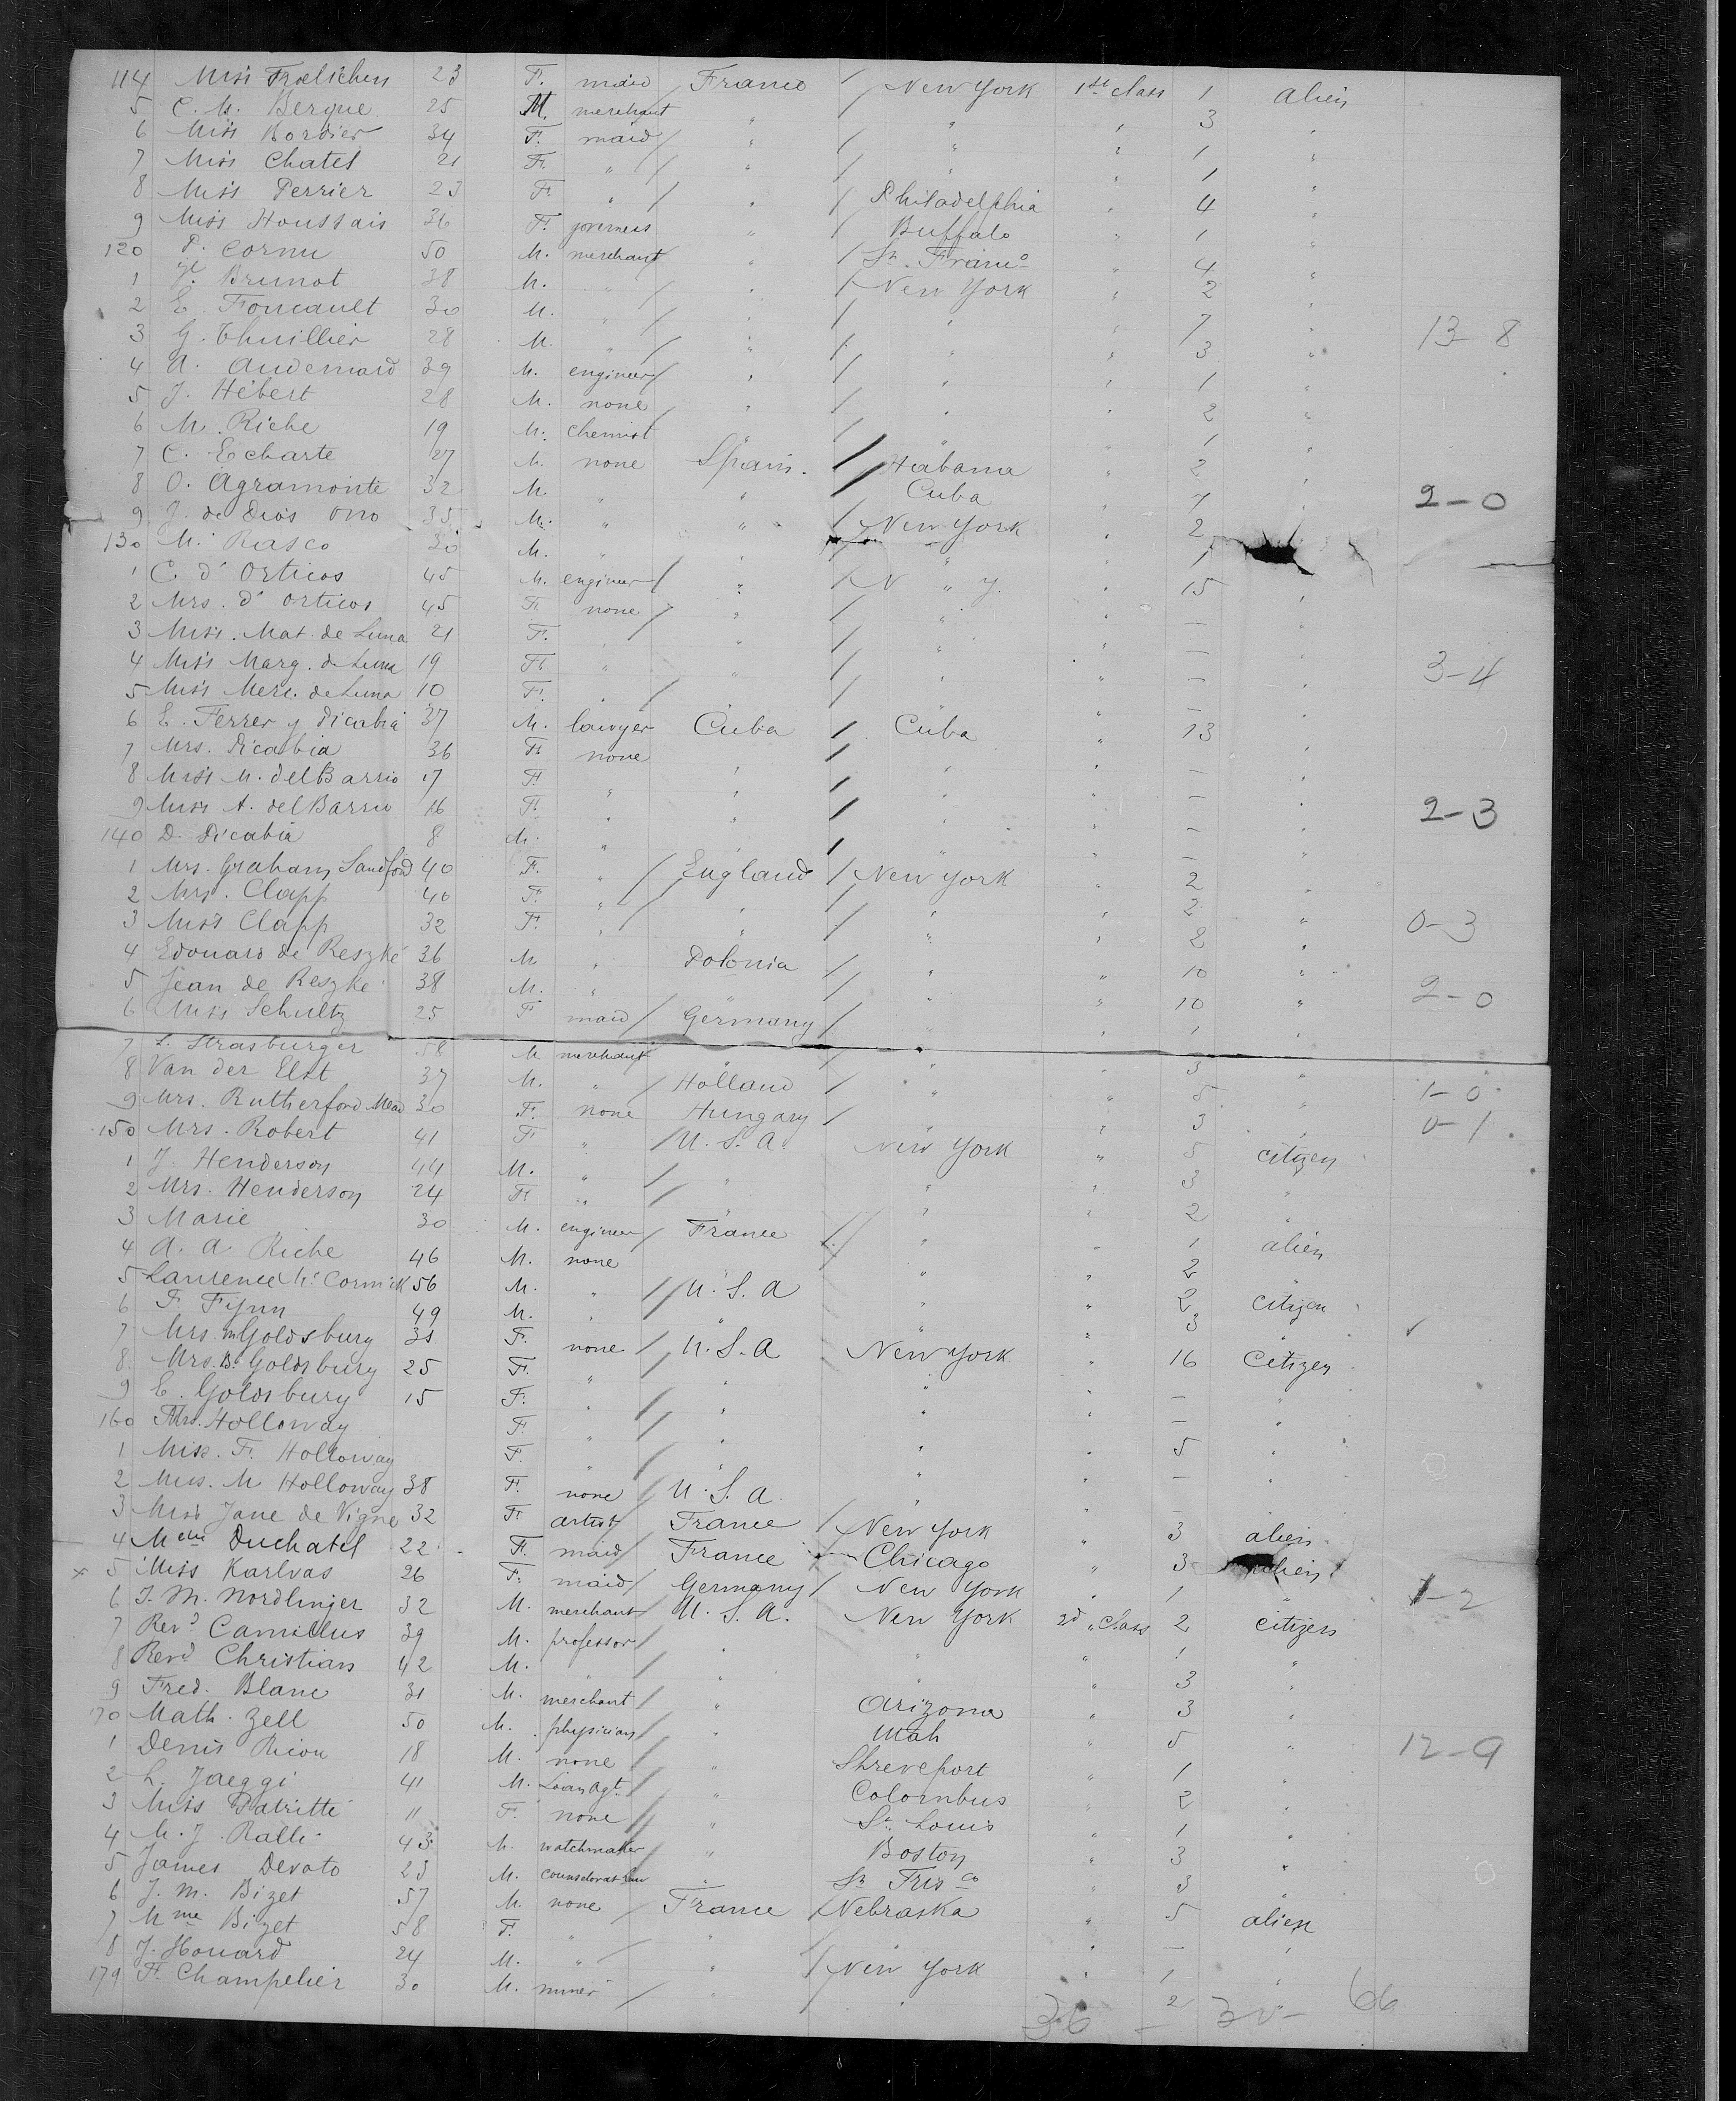 114 Miss Froelichen 23 F. maid France / New York 1st class 1 alien
5 C. M. Bergue 25 M. merchant " / " " 3 "
6 Miss Bordier 34 F. maid / " / " " 1 "
7 Miss Chatel 21 F. " / " / " " 1 "
8 Miss Perrier 23 F. " / " / Philadelphia " 4 "
9 Miss Houssais 36 F. governess " / Buffalo " 1 "
120 P. Cornu 50 M. merchant / " / Sn. Franco " 4 "
1 Brunot 38 M. " / " / New York " 2 "
2 E. Foucault 30 M. " / " / " " 7 " 13-8
3 G. Thuillier 28 M. " / " / " " 3 "
4 A. Audemard 39 M. engineer / " / " " 1 "
5 J. Hébert 28 M. none " / " " 2 "
6 M. Riche 19 M. chemist " / " " 1 "
7 C. Echarte 27 M. none Spain. / Habana " 2 "
8 O. Agramonte 32 M. " " / Cuba " 7 " 2-0
9 J. de Dios Ono 35 M. " " / New York " 2
130 M. Rasco 30 M. " " / " " 1
1 C. d'Orticos 45 M. engineer / " / N " Y. " 15 "
2 Mrs. d'Orticos 45 F. none / " / " " — "
3 Miss. Mat. de Luna 21 F. " " / " " — "
4 Miss Marg. de Luna 19 F. " " / " " — " 3-4
5 Miss Merc. de Luna 10 F. " / " / " " — "
6 E. Ferrer y Picabia 37 M. lawyer Cuba / Cuba " 13 "
7 Mrs. Picabia 36 F. none " / " " — "
8 Miss M. del Barrio 17 F. " " / " " — "
9 Miss A. del Barrio 16 F. " " / " " — " 2-3
140 D. Picabia 8 M. " " / " " — "
1 Mrs. Graham Sandford 40 F. " / England / New York " 2 "
2 Mrs. Clapp 40 F. " / " / " " 2 "
3 Miss Clapp 32 F. " " / " " 2 " 0-3
4 Edouard de Reszké 36 M. " Polonia / " " 10 "
5 Jean de Reszké 38 M. " " / " " 10 " 2-0
6 Miss Schultz 25 F maid / Germany / " " 1 "
7 L. Strasburger 58 M merchant " / " " 3 "
8 Van der Elst 37 M. " / Holland / " " 5 " 1-0
9 Mrs. Rutherford Mead 30 F. none Hungary / " " 3 " 0-1
150 Mrs. Robert 41 F " / U. S. A. New York " 5 citizen
1 J. Henderson 44 M. " / " " " 3 "
2 Mrs. Henderson 24 F. " / " " " 2 "
3 Marie 30 M. engineer / France / " " 1 alien
4 A. A. Riche 46 M. none " / " " 2 "
5 Laurence McCormick 56 M. " / U. S. A " " 2 citizen
6 F. Fynn 49 M. " " " " 3 "
7 Mrs. M Goldsburg 31 F. none / U. S. A New York " 16 Citizen
8 Mrs. B. Goldsburg 25 F. " / " " " — "
9 E. Goldsburg 15 F. " / " " " — "
160 Mrs. Holloway F. " / " " " 5 "
1 Miss. F. Holloway F. " / " " " — "
2 Miss. M Holloway 38 F. none / U. S. A. " " — "
3 Miss Jane de Vigne 32 F. artist / France / New York " 3 alien
4 Duchatel 22 F. maid / France / Chicago " 3 alien
x 5 Miss Karlvas 26 F. maid / Germany / New York " 1 " 1-2
6 J. M. Nordlinger 32 M. merchant / U. S. A. New York 2d class 2 citizen
7 Revd Camillus 39 M. professor / " " " 1 "
8 Revd Christian 42 M. " / " " " 3 "
9 Fred. Blanc 31 M. merchant / " Arizona " 3 "
70 Math. Zell 50 M. physician / " Utah " 5 " 12-9
1 Denis Riou 18 M. none " Shreveport " 1 "
2 L. Jaeggi 41 M. Loan Agt. / " Colombus " 2 "
3 Miss Patritti 11 F. none / " St. Louis " 1 "
4 M. J. Ralli 43 M. watchmaker / " Boston " 3 "
5 James Devoto 23 M. counselor at law " Sn Frisco " 3 "
6 J. M. Bizet 57 M. none / France / Nebraska " 5 alien
7 Mme Bizet 58 F. " " " " — "
8 J. Houard 24 M. " / " / New York " 1 "
179 F. Champelier 30 M. miner / " " " 2 "
36 — 30 — 66